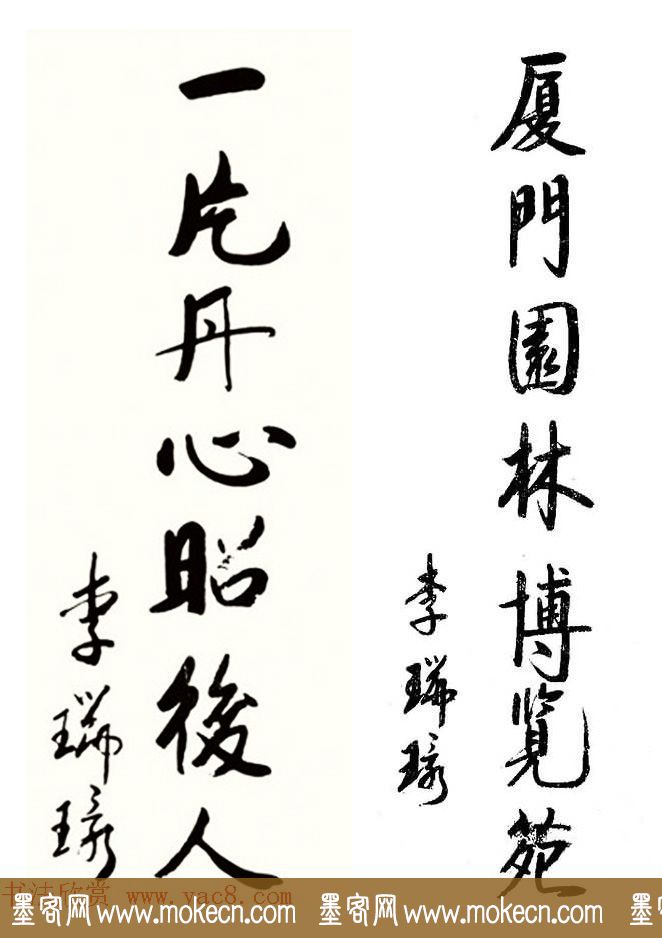 厦門園林博覽苑
李瑞環
一片丹心昭後人
李瑞環
书法欣赏 www.yac8.com
墨客网 www.mokecn.com 墨客网 www.mokecn.com